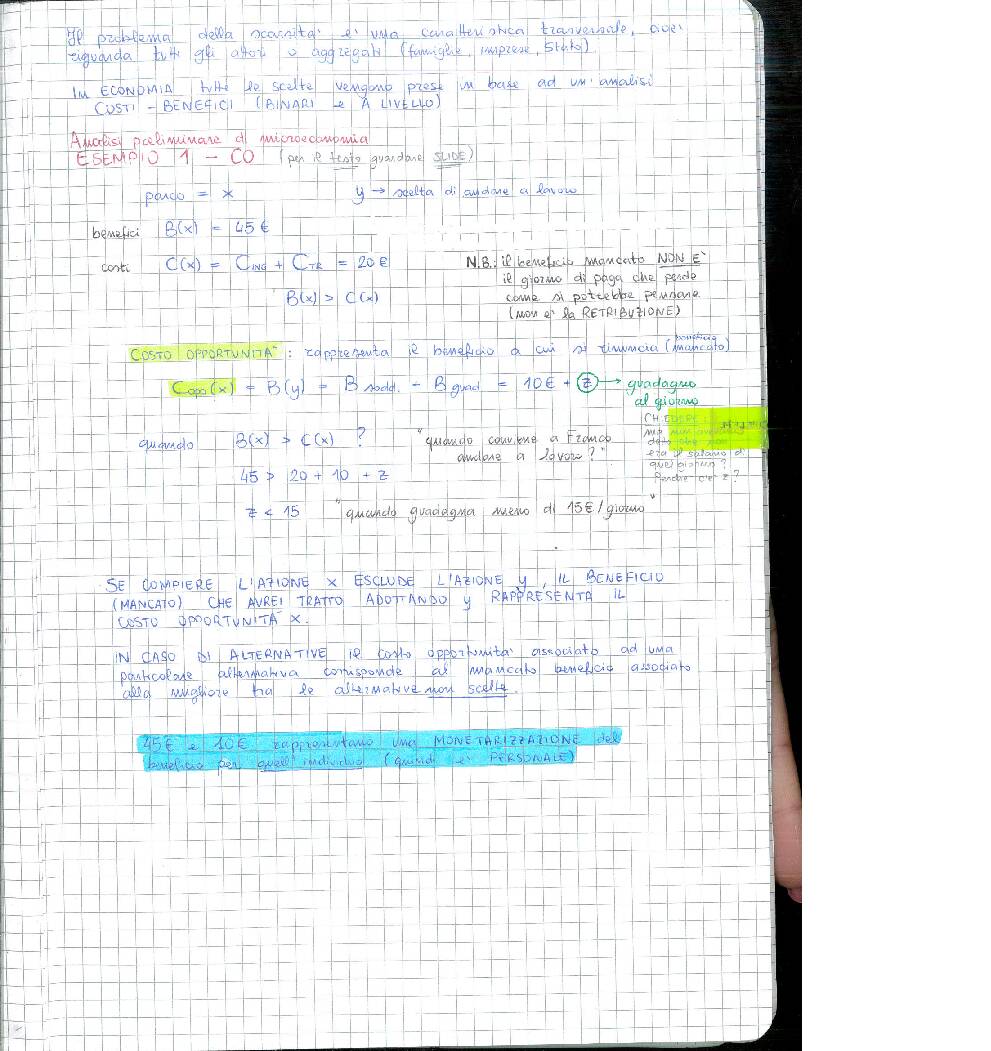 Il problema della scarsità è una caratteristica trasversale, cioè
riguarda tutti gli attori o aggregati (famiglie, imprese, Stato)
IN ECONOMIA tutte le scelte vengono prese in base ad un'analisi
COSTI - BENEFICI (BINARI e A LIVELLO)
Analisi preliminare di microeconomia
ESEMPIO 1 - CO (per il testo guardare SLIDE)
parco = x y → scelta di andare a lavoro
benefici B(x) = 45 €
costi C(x) = C ING + C TR = 20 €
B(x) > C(x)
N.B.: il beneficio mancato NON È
il giorno di paga che perde
come si potrebbe pensare
(non è la RETRIBUZIONE)
COSTO OPPORTUNITÀ : rappresenta il beneficio a cui si rinuncia (beneficio mancato)
Copp(x) = B(y) = B sodd. - B guad = 10 € + z → guadagno
al giorno
CHIEDERE:
ma non
dato che non
era il salario di
quel giorno?
Perché c'è z?
quando B(x) > C(x) ? "quando conviene a Franco
andare a lavoro?"
45 > 20 + 10 + z
z < 15 "quando guadagna meno di 15€/giorno"
SE COMPIERE L'AZIONE x ESCLUDE L'AZIONE y, IL BENEFICIO
(MANCATO) CHE AVREI TRATTO ADOTTANDO y RAPPRESENTA IL
COSTO OPPORTUNITÀ x.
IN CASO DI ALTERNATIVE il costo opportunità associato ad una
particolare alternativa corrisponde al mancato beneficio associato
alla migliore tra le alternative non scelte.
45€ e 10€ rappresentano una MONETARIZZAZIONE del
beneficio per quell'individuo (quindi è PERSONALE)